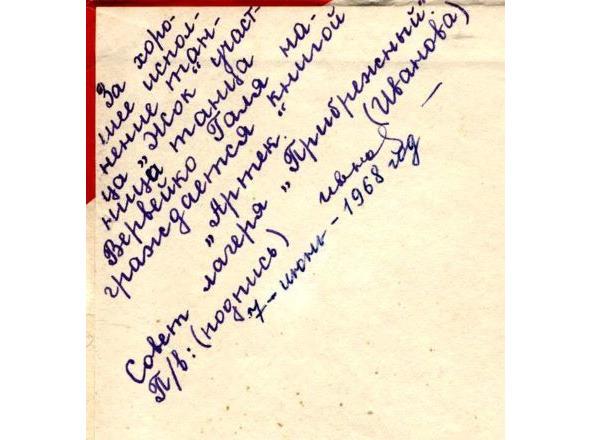 За хоро-
шее испол-
нение тан-
ца "Жок" участ-
ница танца
Вервейко Галя на-
граждается книгой
"Артек."
Совет лагеря "Прибрежный".
П/в: (подпись) ивна (Иванова)
7 - июнь - 1968 год